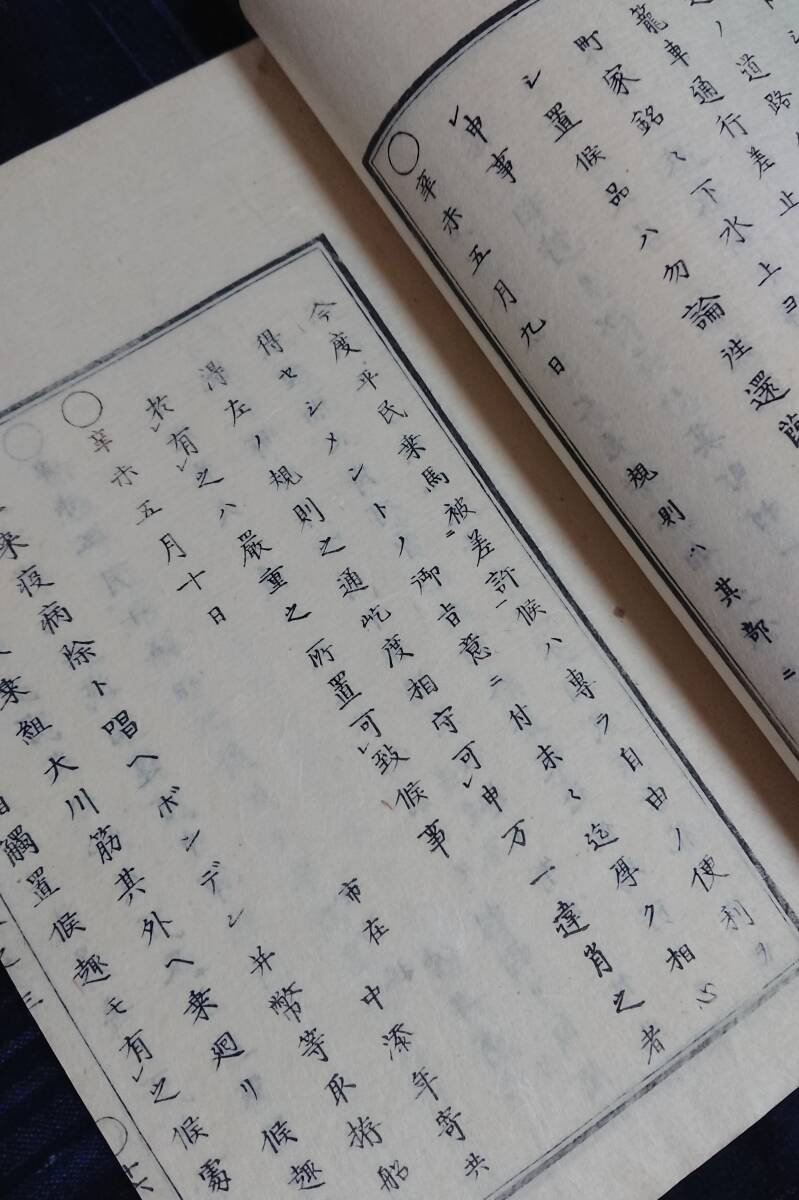 道路
籠車ノ通行差止
町家銘〻下水上ヨ
シ置候品ハ勿論往還
レ申事
○辛未五月九日　規則ハ其部ニ
今度平民乗馬被ニ差許一候ハ専ラ自由ノ便利ヲ
得セシメントノ御旨意ニ付末〻迄厚ク相心
得左ノ規則之通屹度相守可レ申万一違背之者
於レ有レ之ハ嚴重之所置可レ致候事
○辛未五月十日　市在中湊年寄共
来疫病除ト唱ヘボンデン并幣等取拵船
乗組大川筋其外ヘ乗廻リ候趣
觸置候趣モ有レ之候處
之三